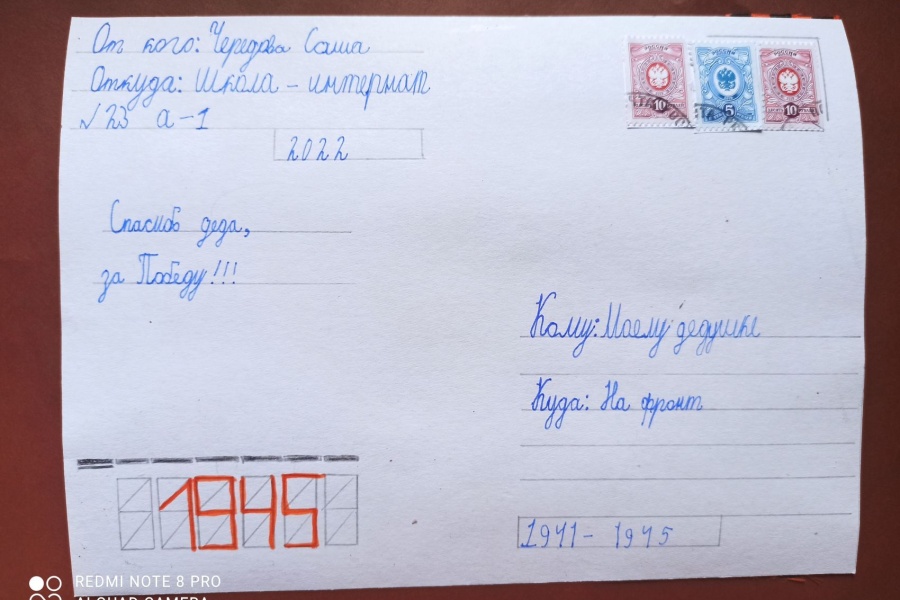 От кого: Чередова Саша
Откуда: Школа – интернат
№23 а-1
2022
Спасибо деда,
за Победу!!!
РОССИЯ
10
РОССИЯ
5
РОССИЯ
10
Кому: Моему дедушке
Куда: На фронт
1941 - 1945
1945
REDMI NOTE 8 PRO
AI QUAD CAMERA